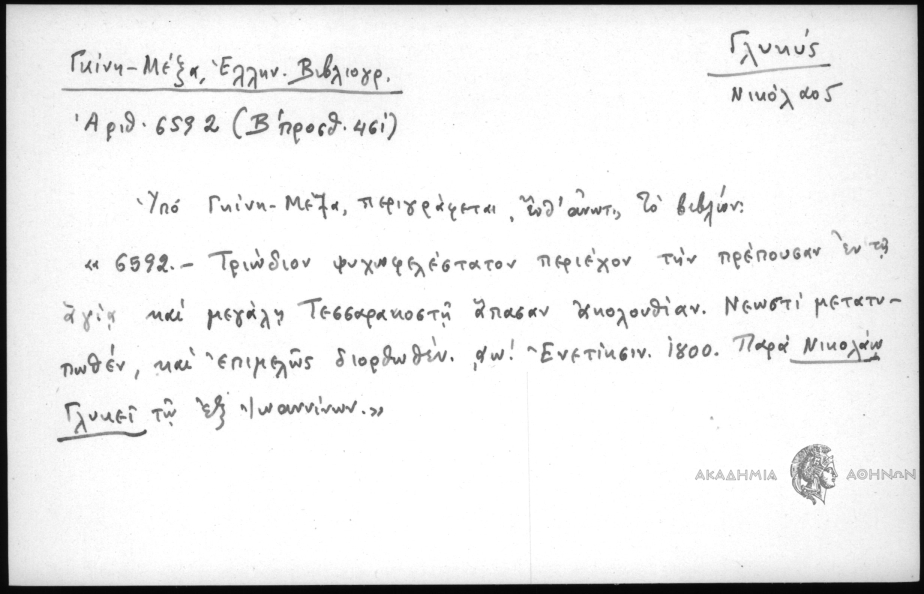 Γλυκύς
Νικόλαος
Γκίνη-Μέξα, Ἑλλην. Βιβλιογρ.
Ἀριθ. 6592 (Β΄ προσθ. 461)
Ὑπό Γκίνη-Μέξα, περιγράφεται, τὸ βιβλίον:
«6592.- Τριῴδιον ψυχωφελέστατον περιέχον τὴν πρέπουσαν ἐν τῇ
ἁγίᾳ καὶ μεγάλῃ Τεσσαρακοστῇ ἅπασαν ἀκολουθίαν. Νεωστὶ μετατυ-
πωθέν, καὶ ἐπιμελῶς διορθωθέν. ͵αω΄. Ἐνετίῃσιν. 1800. Παρά Νικολάῳ
Γλυκεῖ τῷ ἐξ Ἰωαννίνων.»
ΑΚΑΔΗΜΙΑ ΑΘΗΝΩΝ